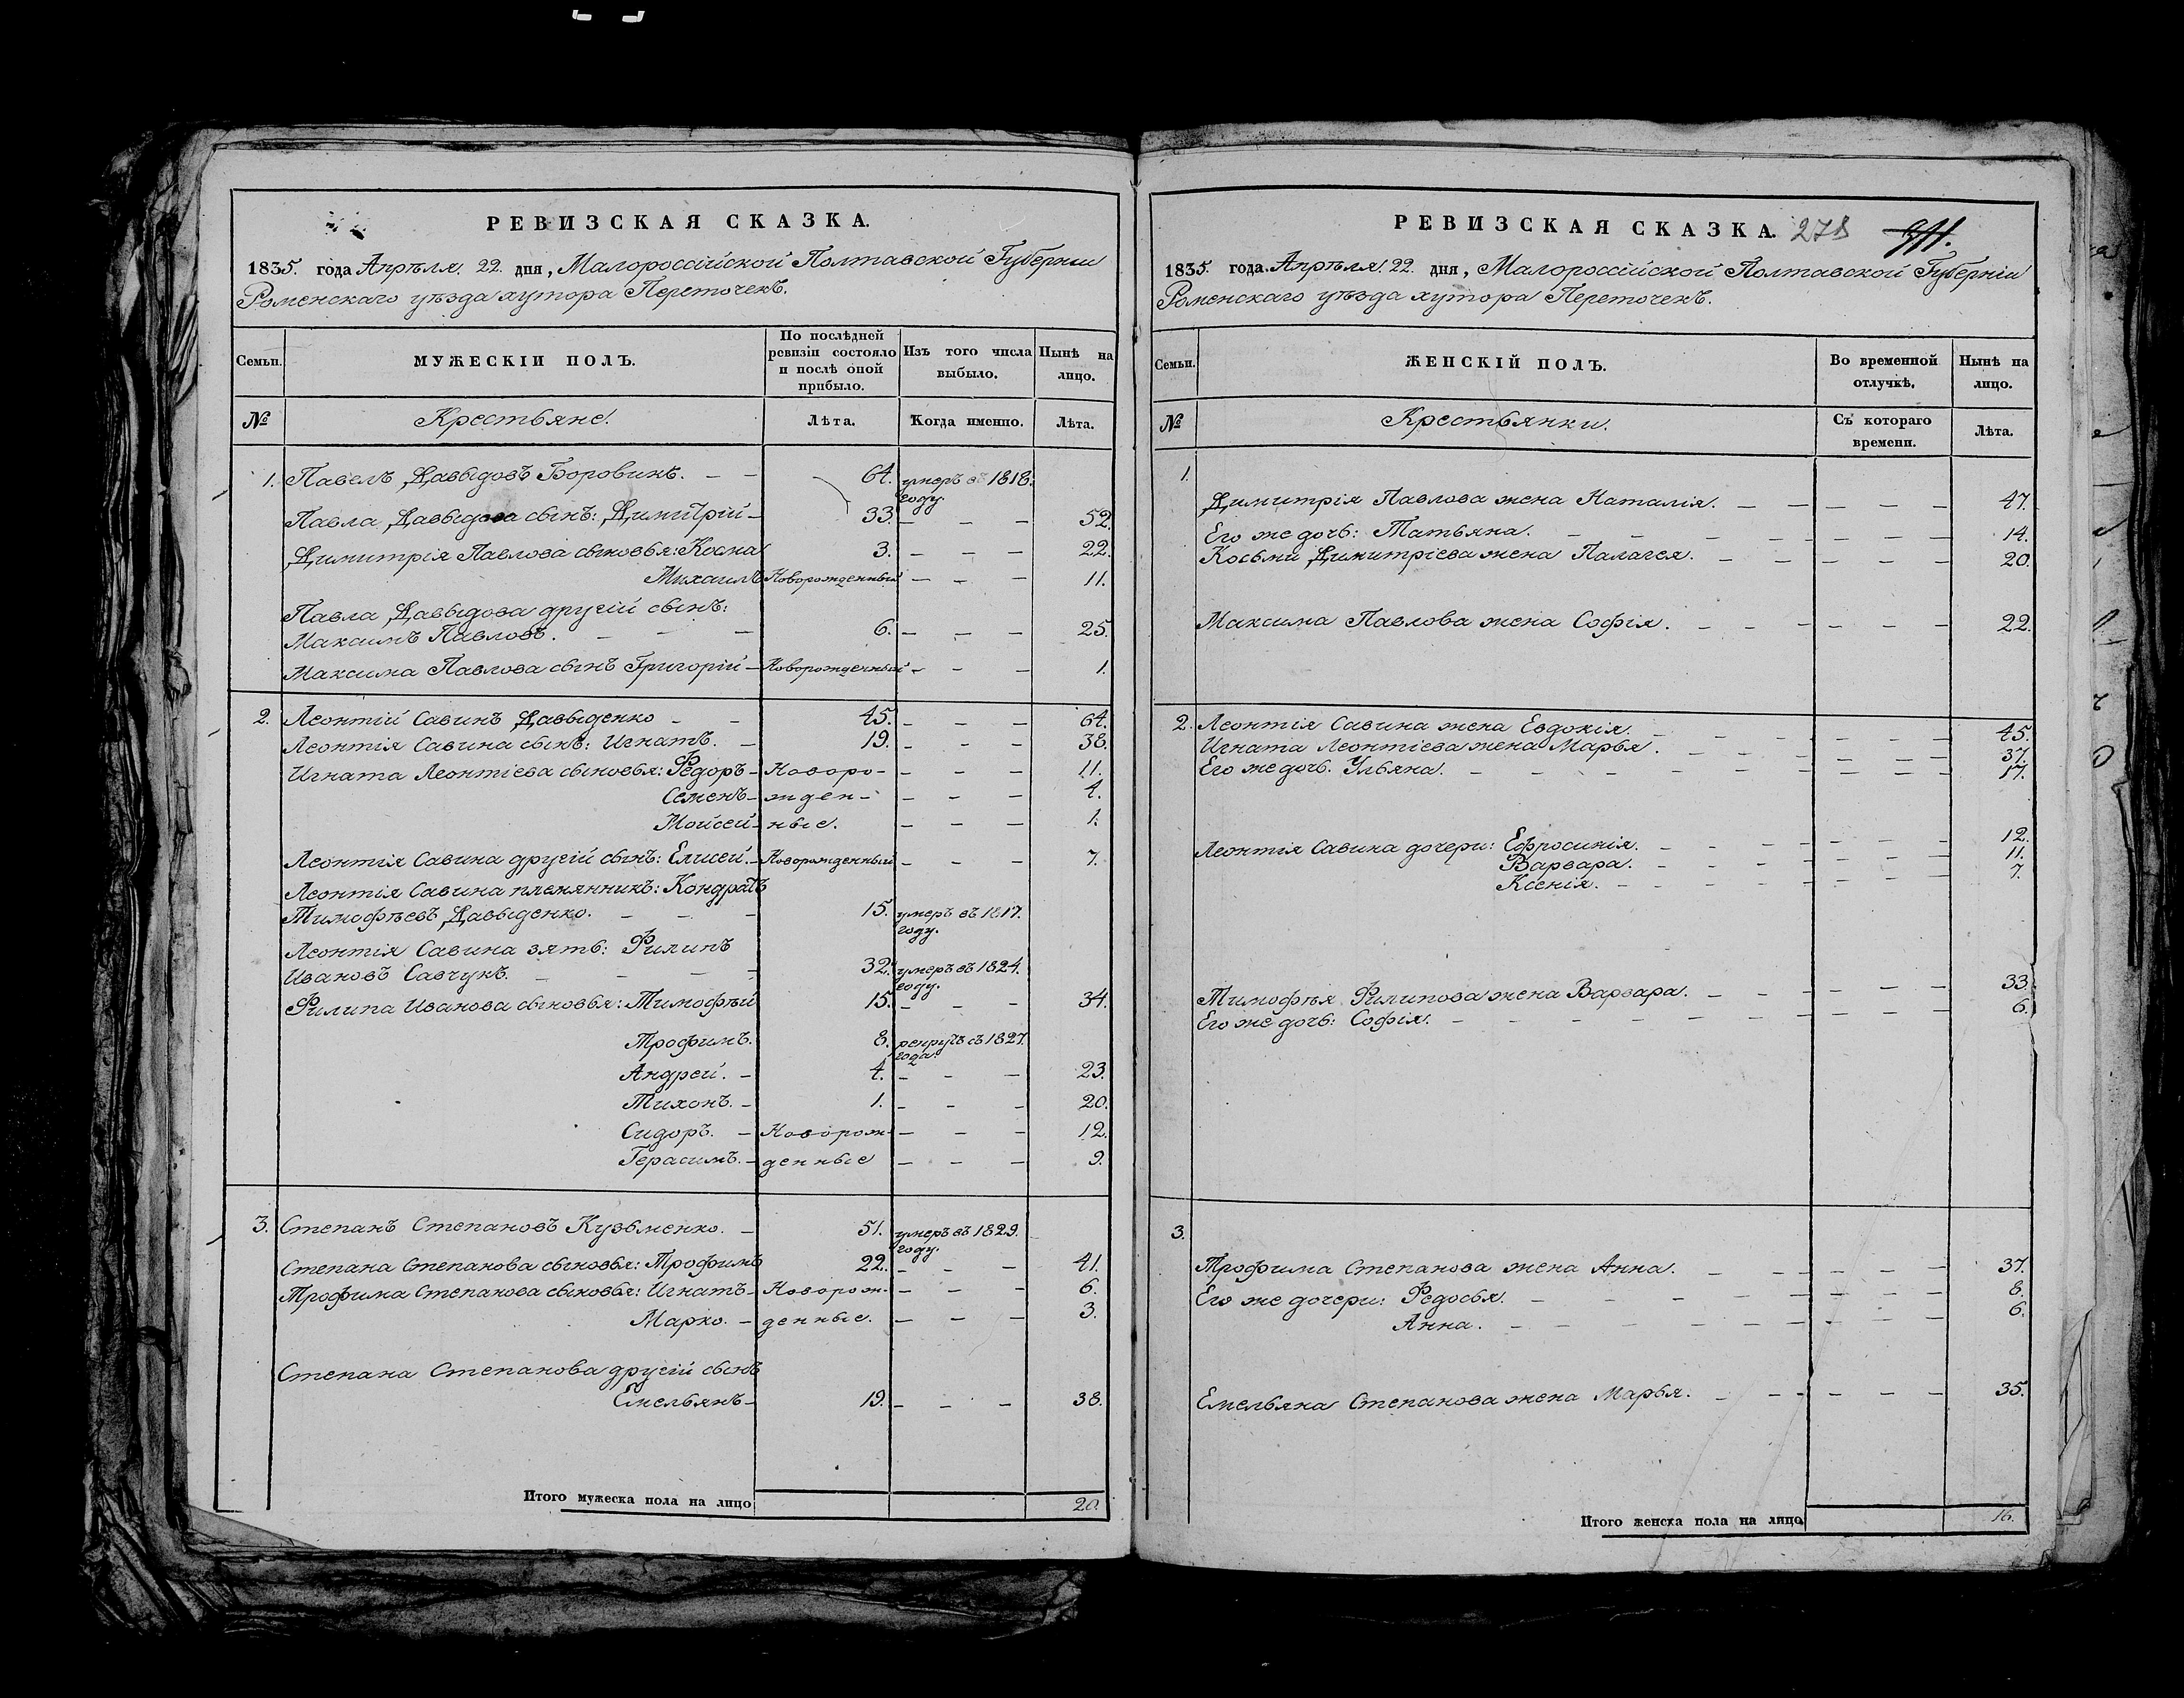 РЕВИЗСКАЯ СКАЗКА.
1835. года Апрѣля. 22. дня, Малороссійской Полтавской Губерніи
Роменскаго уѣзда хутора Переточекъ.
Семьи.
МУЖЕСКІИ ПОЛЪ.
По послѣдней ревизіи состояло и послѣ оной прибыло.
Изъ того числа выбыло.
Нынѣ на лицо.
№ Крестьяне. Лѣта. Когда именно. Лѣта.
1. Павелъ Давыдовъ Боровикъ. – – 64. умеръ въ 1818. году.
Павла Давыдова сынъ: Димитрій – 33. – – – 52.
Димитрія Павлова сыновья: Косма 3. – – – 22.
Михаилъ Новорожденный – – – 11.
Павла Давыдова другій сынъ:
Максимъ Павловъ. – – – 6. – – – 25.
Максима Павлова сынъ Григорій – Новорожденный – – 1.
2. Леонтій Савинъ Давыденко – – 45. – – – 64.
Леонтія Савина сынъ: Игнатъ. – 19. – – – 38.
Игната Леонтіева сыновья: Ѳедоръ – Новоро- – – – 11.
Семенъ – жден- – – – 4.
Мойсей – ные. – – – 1.
Леонтія Савина другій сынъ: Елисей. – Новорожденный – – – 7.
Леонтія Савина племянникъ: Кондратъ
Тимофѣевъ Давыденко. – – – 15. умеръ въ 1817. году.
Леонтія Савина зять: Филипъ
Ивановъ Савчукъ. – – – – 32. умеръ въ 1824. году.
Филипа Иванова сыновья: Тимофѣй 15. – – – 34.
Трофимъ. 8. рекрутъ съ 1827. года.
Андрей. – 4. – – – 23.
Тихонъ. – 1. – – – 20.
Сидоръ. – Новорож- – – – 12.
Герасимъ. – денные – – – 9.
3. Степанъ Степановъ Кузьменко. – 51. умеръ въ 1829. году.
Степана Степанова сыновья: Трофимъ 22. – – – 41.
Трофима Степанова сыновья: Игнатъ – Новорож- – – – 6.
Марко. – денные. – – – 3.
Степана Степанова другій сынъ
Емельянъ – 19. – – – 38.
Итого мужеска пола на лицо 20.
РЕВИЗСКАЯ СКАЗКА. 278
1835. года. Апрѣля. 22. дня, Малороссійской Полтавской Губерніи
Роменскаго уѣзда хутора Переточекъ.
Семьи.
ЖЕНСКІЙ ПОЛЪ.
Во временной отлучкѣ.
Нынѣ на лицо.
№ Крестьянки. Съ котораго времени. Лѣта.
1.
Димитрія Павлова жена Наталія. – – – – – 47.
Его же дочь: Татьяна. – – – – – – – – 14.
Косьми Димитріева жена Палагея. – – – – – 20.
Максима Павлова жена Софія. – – – – – – 22.
2. Леонтія Савина жена Евдокія. – – – – – – 45.
Игната Леонтіева жена Марья. – – – – – – 37.
Его же дочь. Ульяна. – – – – – – – – – 17.
Леонтія Савина дочери: Ефросинія. – – – – – – 12.
Варвара. – – – – – – 11.
Ксенія. – – – – – – – 7.
Тимофѣя Филипова жена Варвара. – – – – – 33.
Его же дочь: Софія. – – – – – – – – – 6.
3.
Трофима Степанова жена Анна. – – – – – – 37.
Его же дочери: Ѳедосья. – – – – – – – – 8.
Анна. – – – – – – – – – 6.
Емельяна Степанова жена Марья. – – – – – – 35.
Итого женска пола на лицо 16.